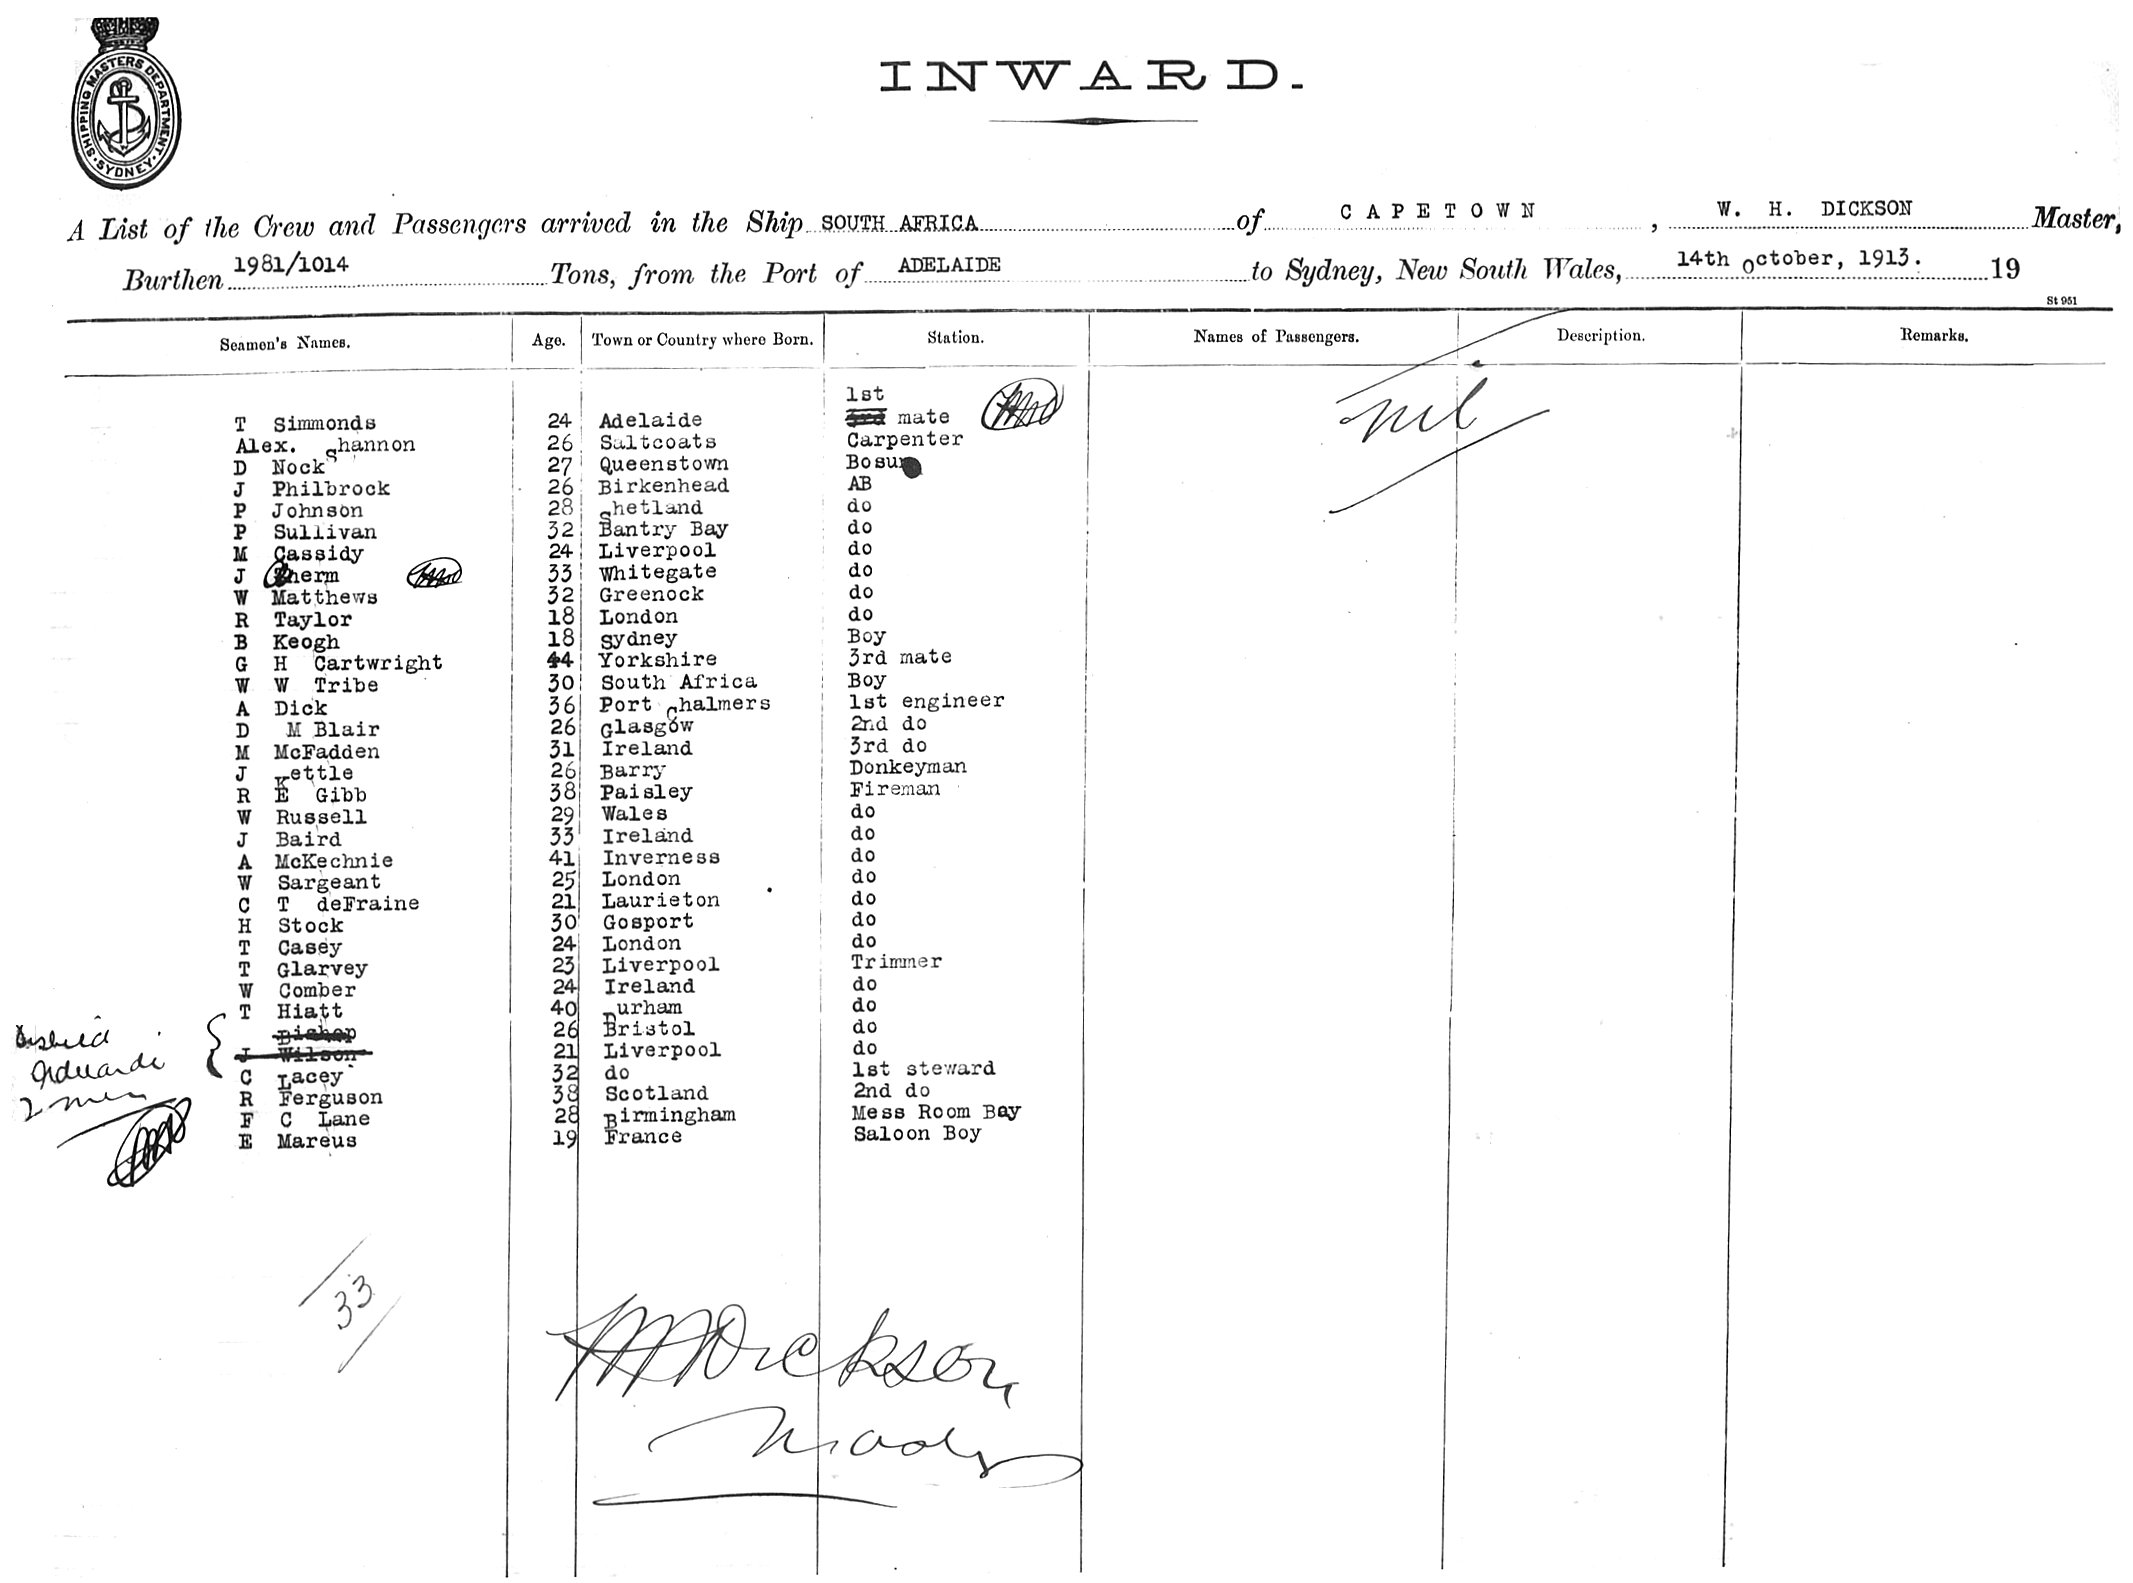 SHIPPING MASTERS DEPARTMENT. SYDNEY
INWARD.
A List of the Crew and Passengers arrived in the Ship SOUTH AFRICA of CAPETOWN, W. H. DICKSON Master,
Burthen 1981/1014 Tons, from the Port of ADELAIDE to Sydney, New South Wales, 14th October, 1913. 19
St 951
Seamen's Names. Age. Town or Country where Born. Station. Names of Passengers. Description. Remarks.
1st
T Simmonds 24 Adelaide mate
nil
Alex. Shannon 26 Saltcoats Carpenter
D Nock 27 Queenstown Bosun
J Philbrock 26 Birkenhead AB
P Johnson 28 Shetland do
P Sullivan 32 Bantry Bay do
M Cassidy 24 Liverpool do
J herm 33 Whitegate do
W Matthews 32 Greenock do
R Taylor 18 London do
B Keogh 18 Sydney Boy
G H Cartwright 44 Yorkshire 3rd mate
W W Tribe 30 South Africa Boy
A Dick 36 Port Chalmers 1st engineer
D M Blair 26 Glasgow 2nd do
M McFadden 31 Ireland 3rd do
J Kettle 26 Barry Donkeyman
R E Gibb 38 Paisley Fireman
W Russell 29 Wales do
J Baird 33 Ireland do
A McKechnie 41 Inverness do
W Sargeant 25 London do
C T deFraine 21 Laurieton do
H Stock 30 Gosport do
T Casey 24 London do
T Glarvey 23 Liverpool Trimmer
W Comber 24 Ireland do
T Hiatt 40 Durham do
Bishop 26 Bristol do
J Wilson 21 Liverpool do
C Lacey 32 do 1st steward
R Ferguson 38 Scotland 2nd do
2 men
F C Lane 28 Birmingham Mess Room Boy
E Mareus 19 France Saloon Boy
33
WHDickson
Master